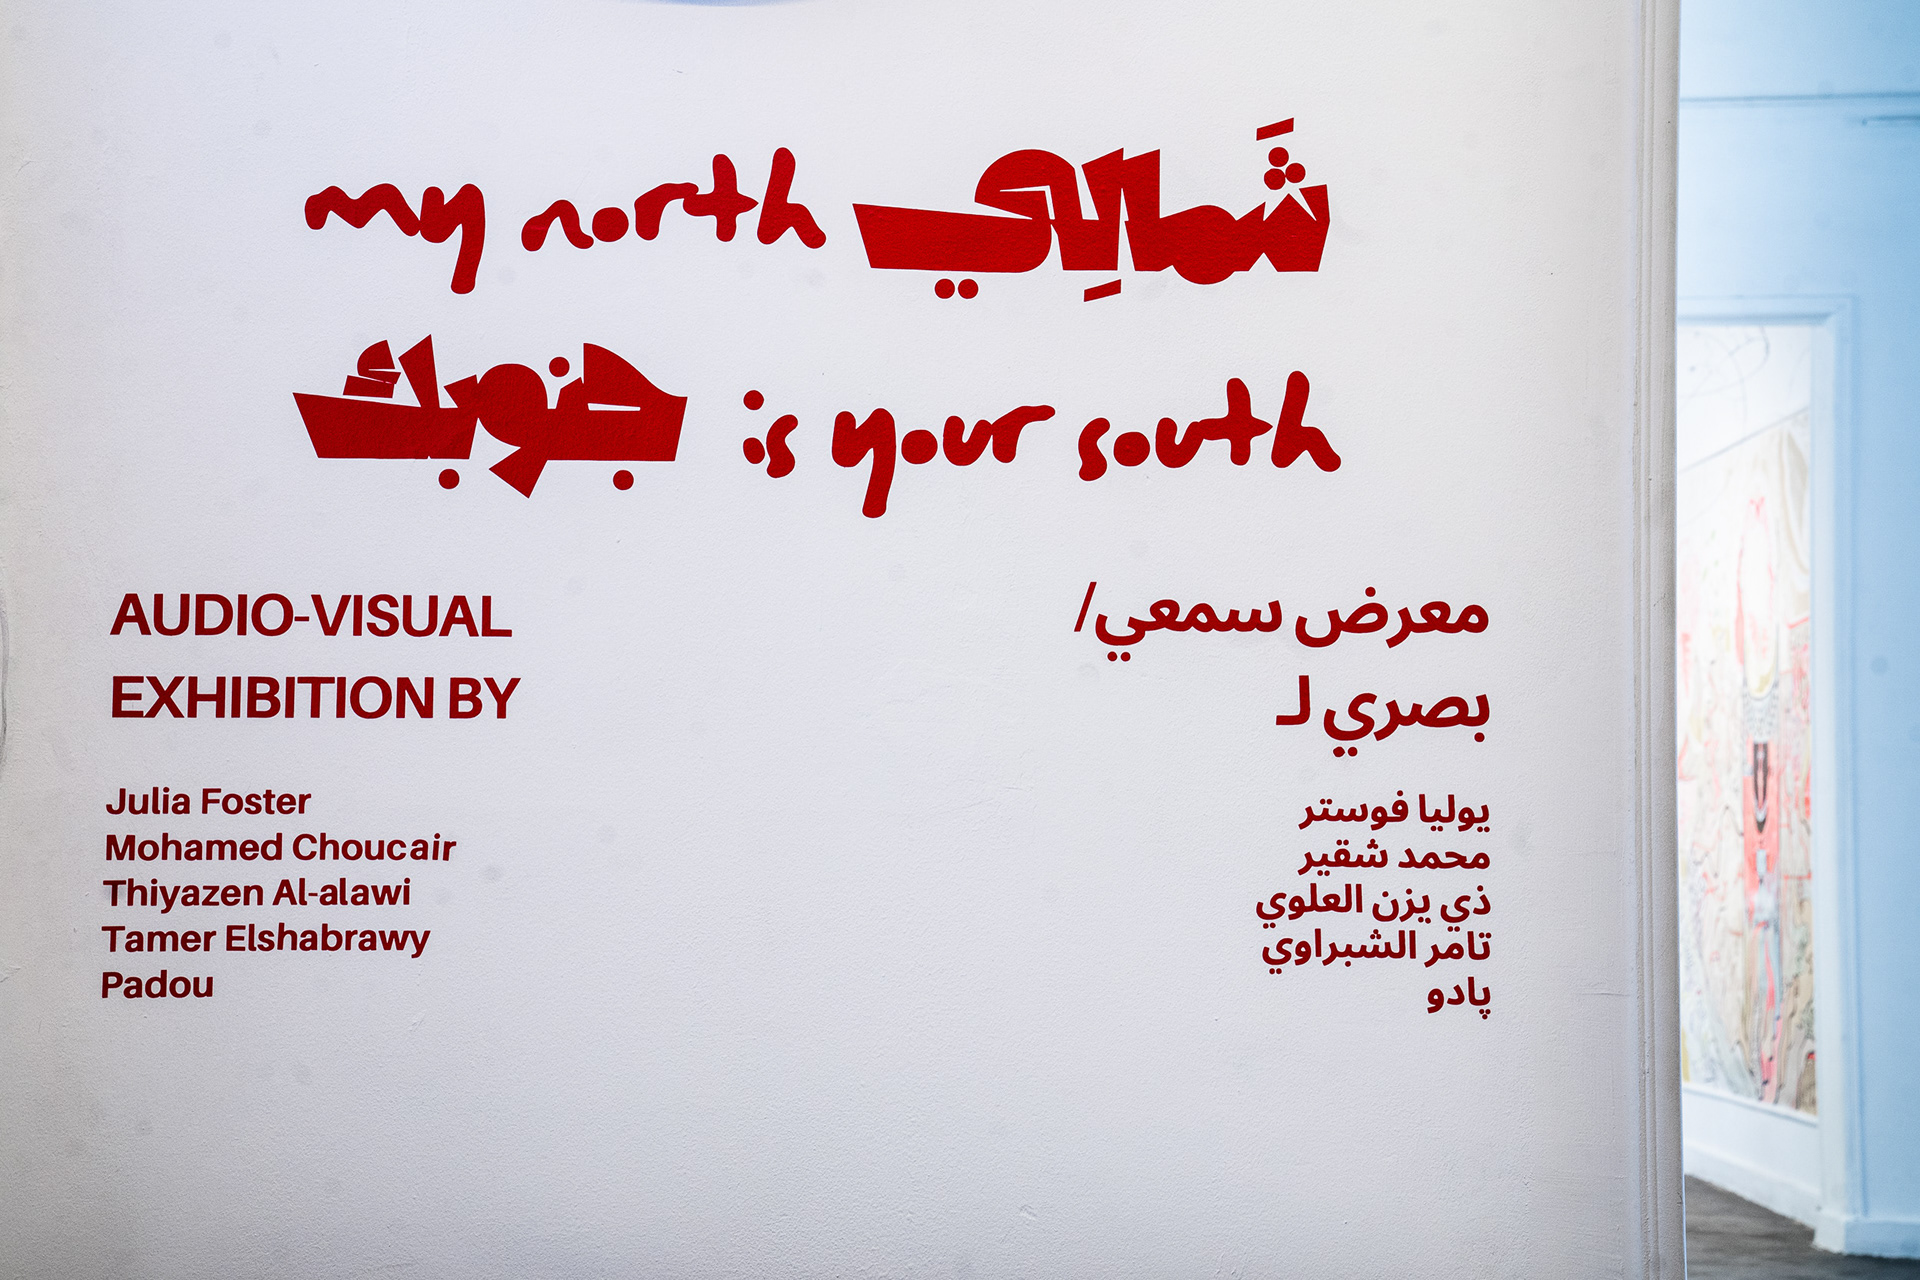 my north شَمالِي
جنوبك is your south
AUDIO-VISUAL
EXHIBITION BY
Julia Foster
Mohamed Choucair
Thiyazen Al-alawi
Tamer Elshabrawy
Padou
معرض سمعي/
بصري لـ
يوليا فوستر
محمد شقير
ذي يزن العلوي
تامر الشبراوي
پادو